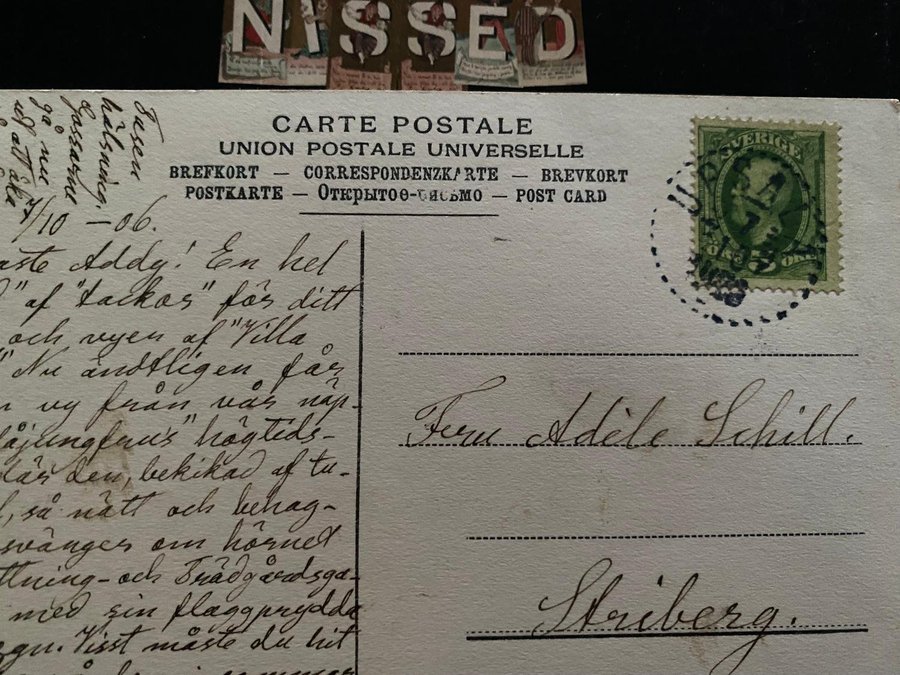 NISSED
CARTE POSTALE
UNION POSTALE UNIVERSELLE
BREFKORT — CORRESPONDENZKARTE — BREVKORT
POSTKARTE — Открытое-письмо — POST CARD
SVERIGE
hälsning
gå nu
/10 -06.
aste Addy! En hel
" af "tackor" för ditt
och vyen af "Villa
" Nu ändtligen får
n vy från vår näp-
åjungfrus" högtids-
den, bekikad af tu-
, så nätt och behag-
svänger om hörnet
ttning- och Trädgårdsga-
med sin flaggprydda
gn. Visst måste du hit
sommar
Fru Adèle Schill.
Striberg.